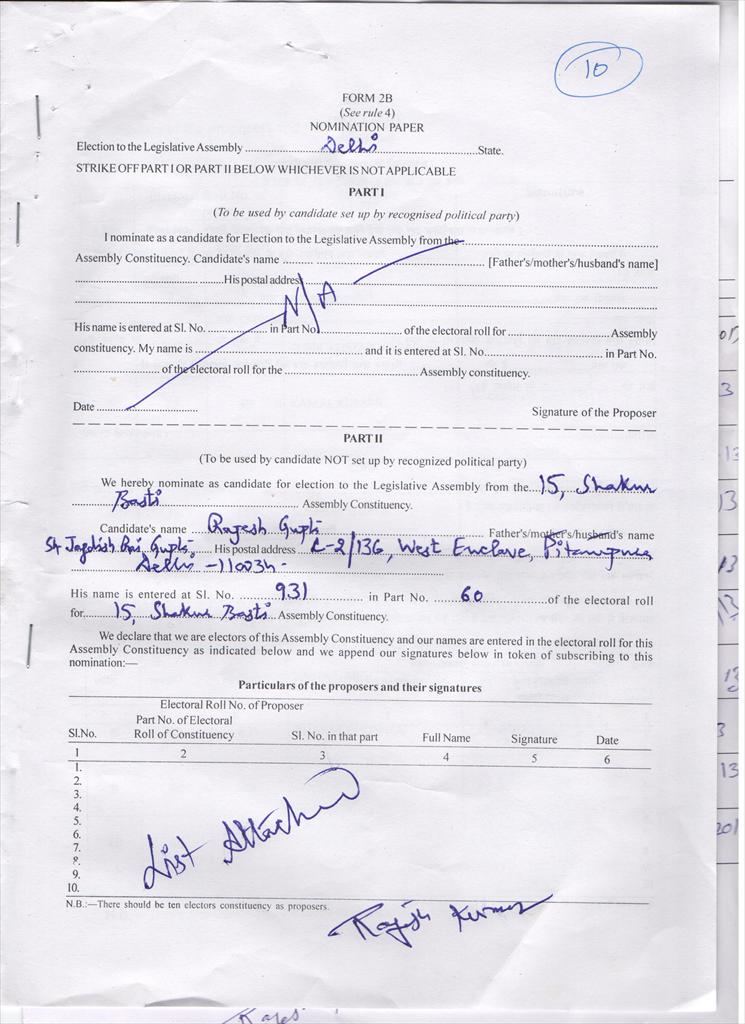 10
FORM 2B
(See rule 4)
NOMINATION PAPER
Election to the Legislative Assembly ........ Delhi ........ State.
STRIKE OFF PART I OR PART II BELOW WHICHEVER IS NOT APPLICABLE
PART I
(To be used by candidate set up by recognised political party)
I nominate as a candidate for Election to the Legislative Assembly from the ........
Assembly Constituency. Candidate's name ........ [Father's/mother's/husband's name]
........ His postal address ........
N/A
His name is entered at Sl. No. ........ in Part No. ........ of the electoral roll for ........ Assembly
constituency. My name is ........ and it is entered at Sl. No. ........ in Part No.
........ of the electoral roll for the ........ Assembly constituency.
Date ........ Signature of the Proposer
PART II
(To be used by candidate NOT set up by recognized political party)
We hereby nominate as candidate for election to the Legislative Assembly from the.... 15, Shakur
Basti ........ Assembly Constituency.
Candidate's name ........ Rajesh Gupta ........ Father's/mother's/husband's name
Sh Jagdish Gupta ..... His postal address ... C-2/136, West Enclave, Pitampura
Delhi - 110034.
His name is entered at Sl. No. ........ 931 ........ in Part No. ........ 60 ........ of the electoral roll
for ........ 15, Shakur Basti ... Assembly Constituency.
We declare that we are electors of this Assembly Constituency and our names are entered in the electoral roll for this
Assembly Constituency as indicated below and we append our signatures below in token of subscribing to this
nomination:—
Particulars of the proposers and their signatures
Electoral Roll No. of Proposer
Part No. of Electoral
Sl.No. Roll of Constituency Sl. No. in that part Full Name Signature Date
1 2 3 4 5 6
1.
2.
3.
4.
5.
6.
7.
8.
9.
10.
List Attached
N.B.:—There should be ten electors constituency as proposers.
Rajesh Kumar